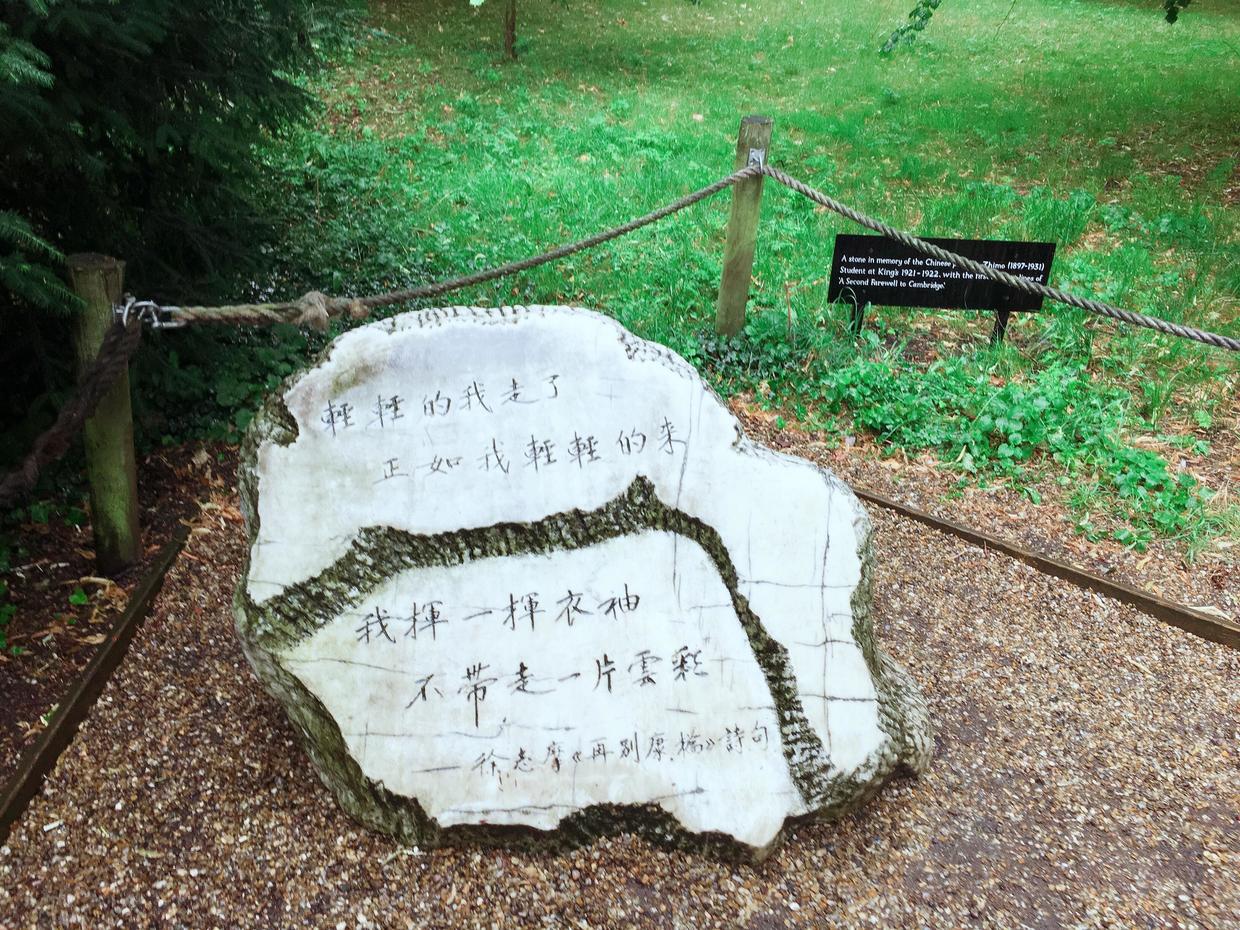 輕輕的我走了
正如我輕輕的来
我揮一揮衣袖
不帶走一片雲彩
——徐志摩《再别康橋》詩句
A stone in memory of the Chinese Zhimo (1897-1931)
Student at King's 1921-1922, with the first of
'A Second Farewell to Cambridge'